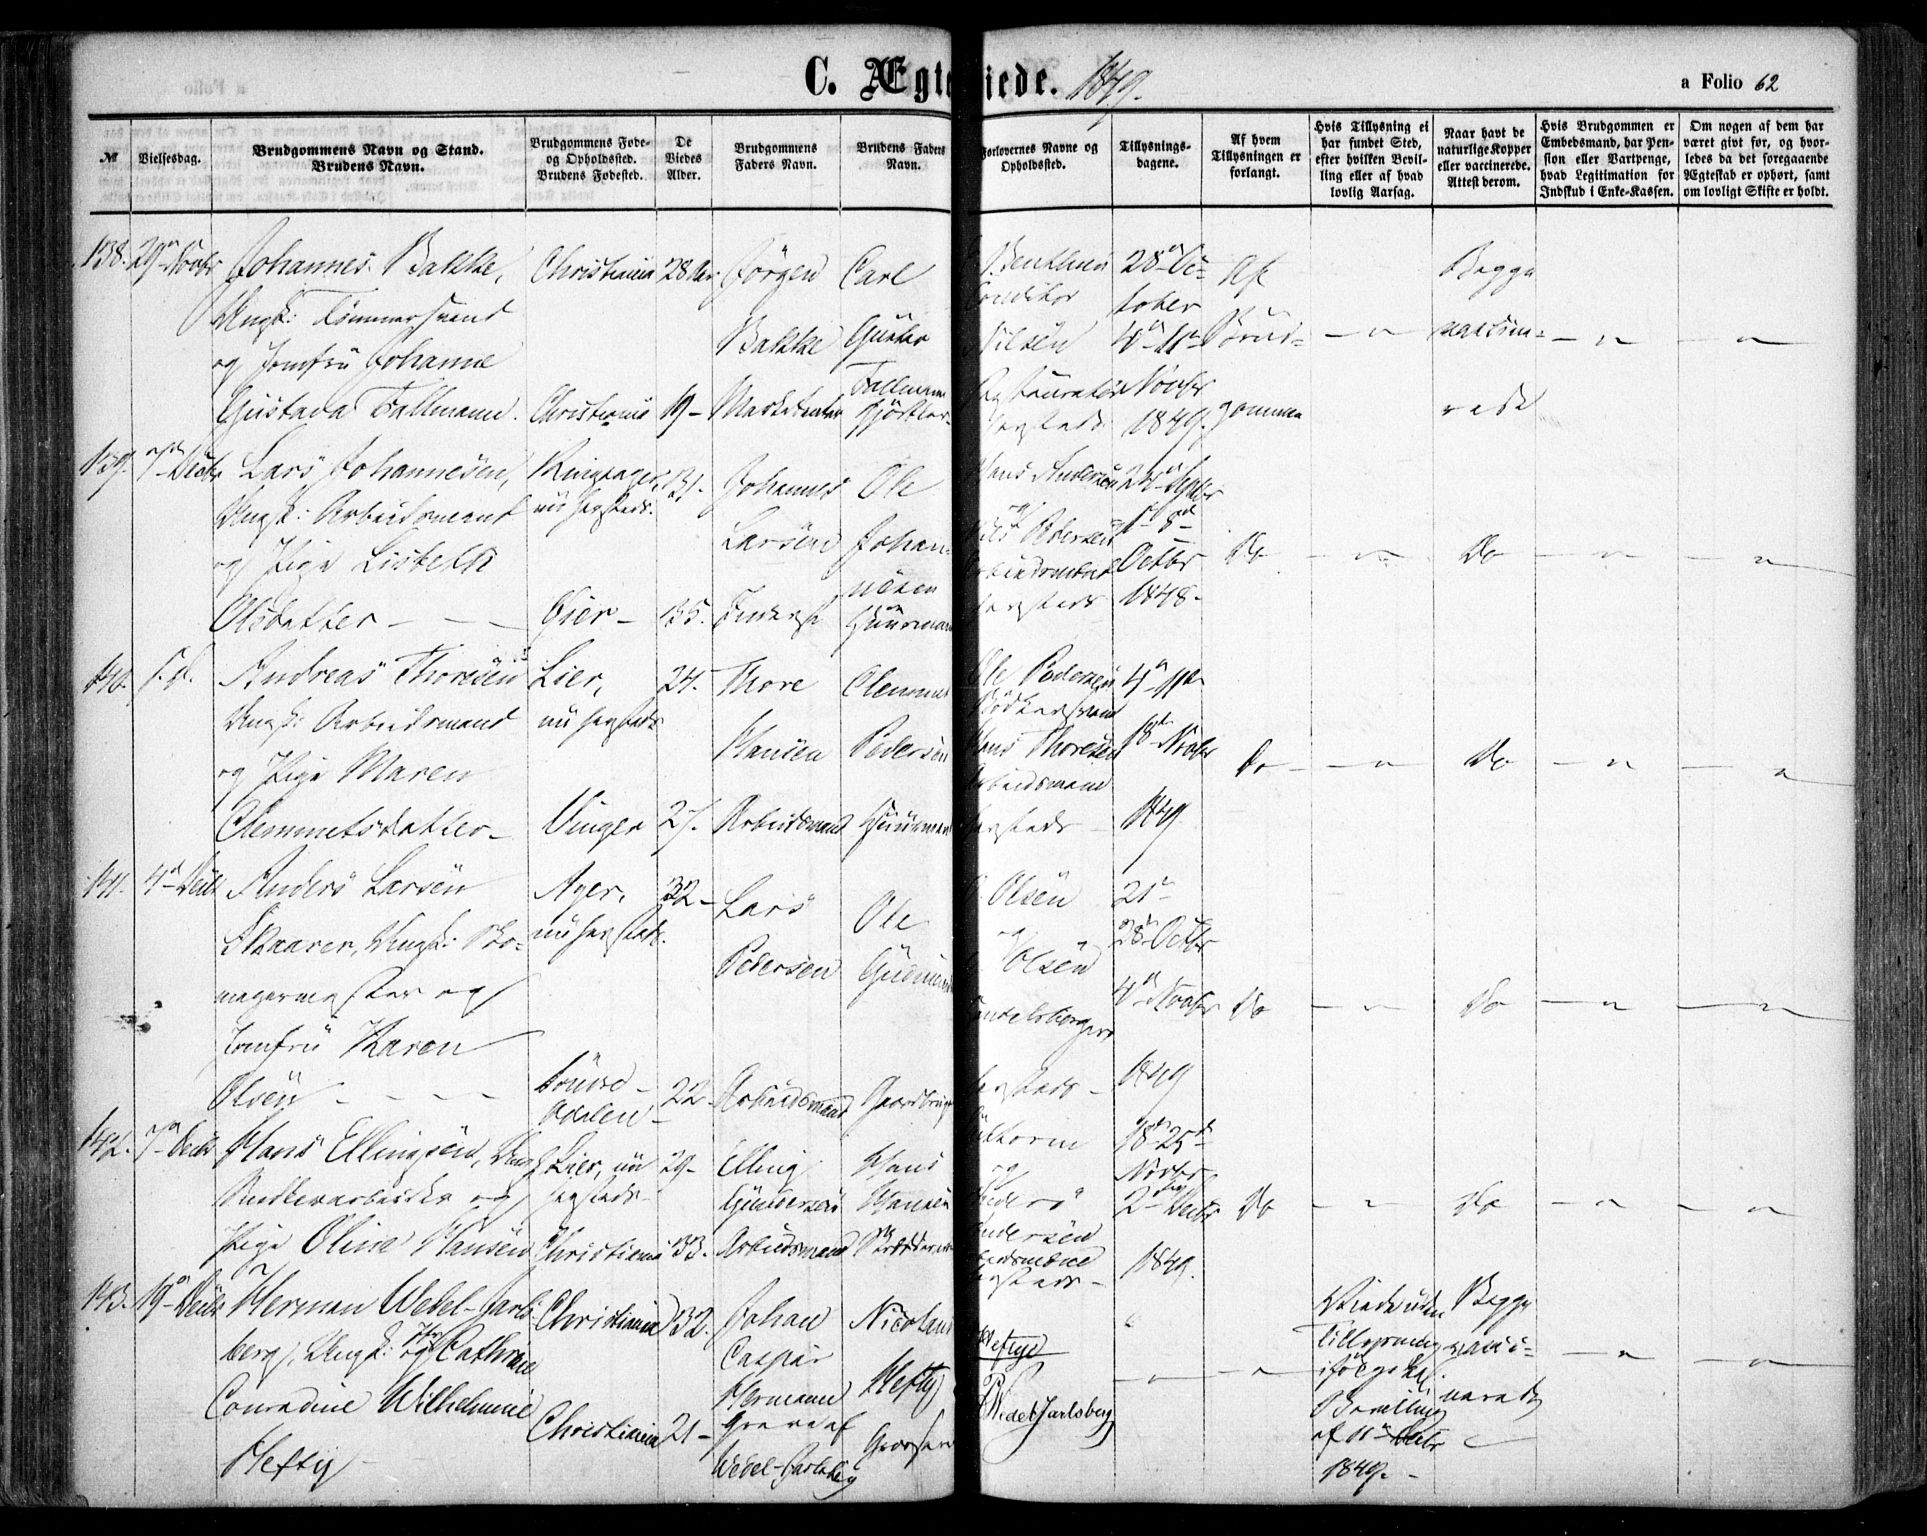 C. Ægteviede. 1849.
a Folio 62
№
Vielsesdag.
Brudgommens Navn og Stand.
Brudens Navn.
Brudgommens Føde-
og Opholdssted.
Brudens Fødested.
De
Viedes
Alder.
Brudgommens
Faders Navn.
Brudens Faders
Navn.
Forlovernes Navne og
Opholdssted.
Tillysnings-
dagene.
Af hvem
Tillysningen er
forlangt.
Hvis Tillysning ei
har fundet Sted,
efter hvilken Bevil-
ling eller af hvad
lovlig Aarsag.
Naar havt de
naturlige Kopper
eller vaccinerede.
Attest derom.
Hvis Brudgommen er
Embedsmand, har Pen-
sion eller Vartpenge,
hvad Legitimation for
Indskud i Enke-Kassen.
Om nogen af dem har
været givt før, og hvor-
ledes da det foregaaende
Ægteskab er ophørt, samt
om lovligt Skifte er holdt.
138. 29 Novbr
Johannes Bakke,
Ungk: Tømmersvend
og Jomfru Johanne
Gustava Fallmann.
Christiania
Christiania
28 Aar
19
Jørgen
Bakke
Marketenter
Carl
Gustav
Fallmann
Conditor
Nilsen
28 Oc-
tober
4 11
Novbr
1849.
Af
Brud-
gommen
Begge
vaccine-
rede
139. 7 Decbr
Lars Johannesen,
Ungk: Arbeidsmand
og Pige Lisbeth
Olsdatter
Ringsager,
nu her steds.
Øier
31.
35.
Johannes
Larsen
Inderst
Ole
Johan-
nesen
Huusmand
Hans Andersen
og
Nils Pedersen
Arbeidsmænd
her steds
24 Septbr
1 8
Octbr
1848.
Do
Do
140. S. D.
Andreas Thoresen
Ungk: Arbeidsmand
og Pige Maren
Clemmetsdatter
Lier,
nu her steds
Vinger
24.
27.
Thore
Hansen
Arbeidsmand
Clemmet
Pedersen
Huusmand
Ole Pedersen
Bødkersvend
Hans Thoresen
Arbeidsmand
her steds
4 11
18 Novbr
1849
Do
Do
141. 4 Decbr
Anders Larsen
Skaarer, Ungk: Sko-
magermester og
Jomfru Karen
Olsen
Ager,
nu her steds.
Søndre
Odalen
32
22
Lars
Pedersen
Arbeidsmand
Ole
Gaardbruger
Olsen
og
Olsen
Handelsborgere
her steds
21
28 Octbr
4 Novbr
1849
Do
Do
142. 7 Decbr
Hans Ellingsen, Ungk:
og
Pige Oline Hansen
Lier, nu
her steds
Christiania
29
33.
Elling
Gundersen
Arbeidsmand
Hans
Hansen
og
Andersen
Arbeidsmænd
her steds
18 25
Novbr
2 Decbr
1849.
Do
Do
143. 19 Decbr
Herman Wedel-Jarls-
berg, Ungk: og Cathrine
Conradine Wilhelmine
Hefty
Christiania
Christiania
32.
21
Johan
Caspar
Hermann
Greve af
Wedel-Jarlsberg
Nicolaus
Hefty
Grosserer
Heftye
Wedel Jarlsberg
Viede uden
Tillysning
ifølge kgl.
Bevilling
af 11 Decbr
1849.
Begge
vacci-
nerede